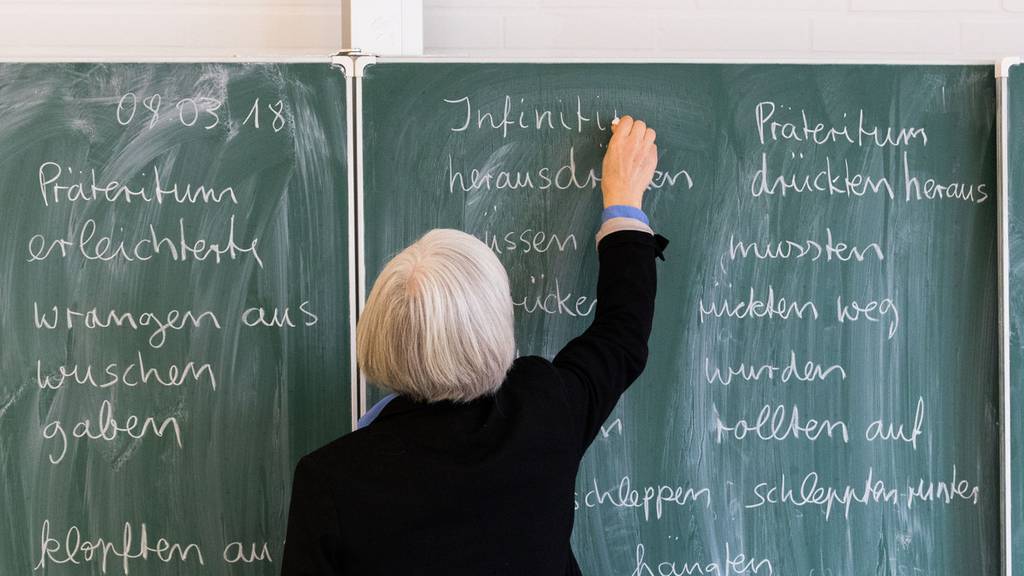 08.03.18
Präteritum
erleichterte
wrangen aus
wuschen
gaben
klopften au
Infiniti
herausdr ken
üssen
ücke
n
schleppen
hängten
Präteritum
drückten heraus
mussten
rückten weg
wurden
rollten auf
schleppten runter